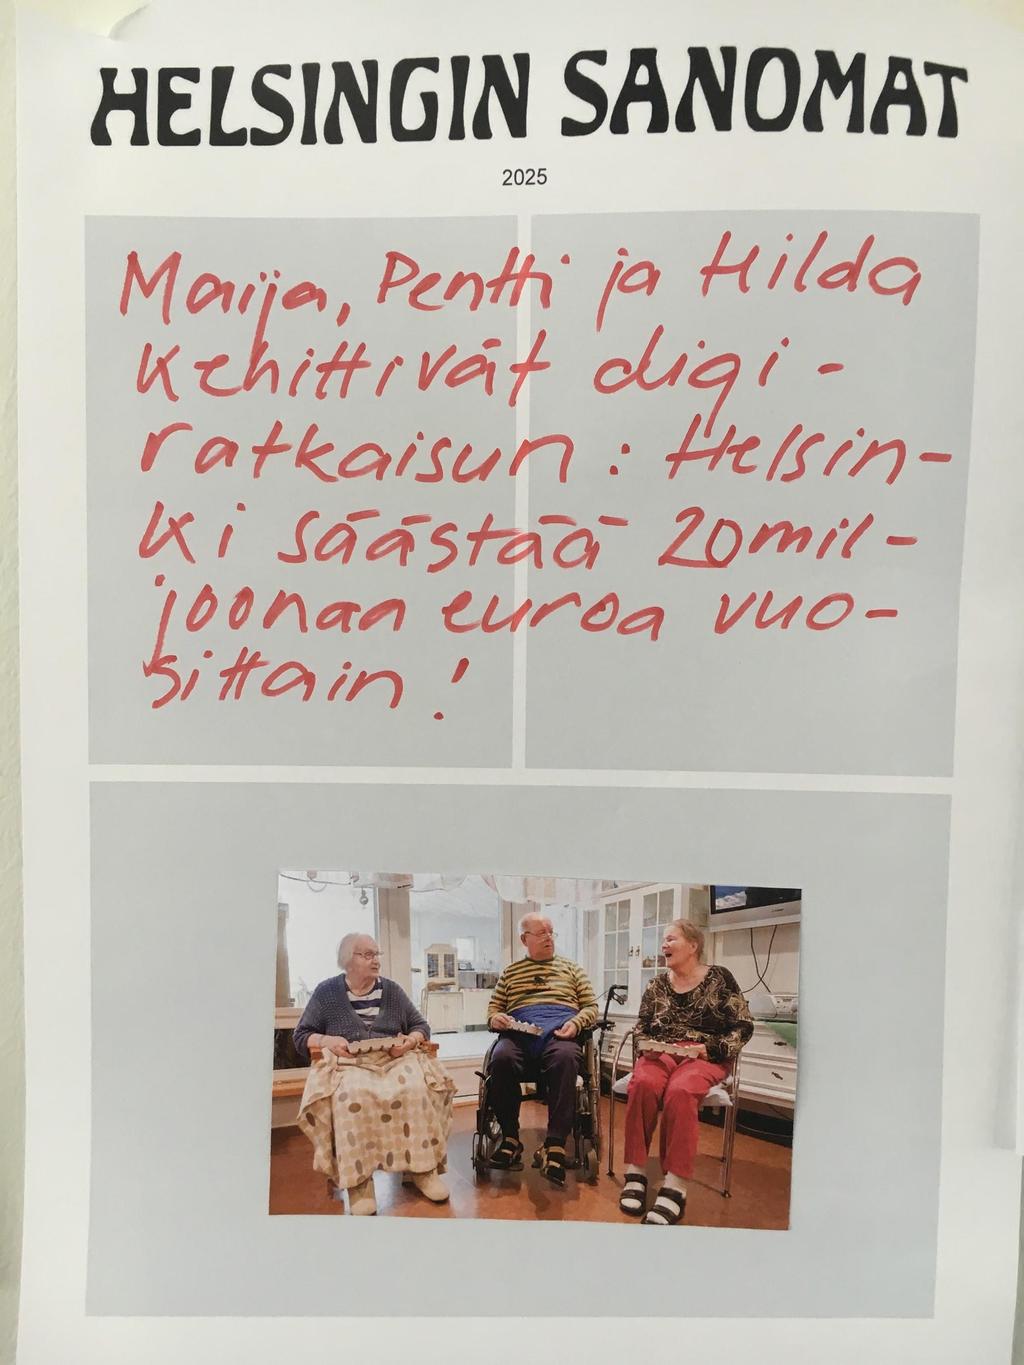 HELSINGIN SANOMAT
2025
Maija, Pentti ja Hilda
kehittivät digi-
ratkaisun : Helsin-
ki säästää 20 mil-
joonaa euroa vuo-
sittain !